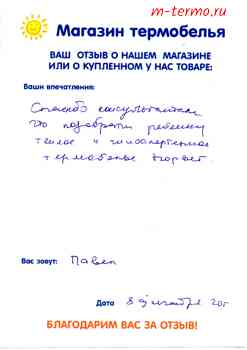 m-termo.ru
Магазин термобелья
ВАШ ОТЗЫВ О НАШЕМ МАГАЗИНЕ
ИЛИ О КУПЛЕННОМ У НАС ТОВАРЕ:
Ваши впечатления:
Спасибо консультантам
что подобрали ребенку
теплое и гипоаллергенное
термобелье
Вас зовут: Павел
Дата 8 декабря 20
БЛАГОДАРИМ ВАС ЗА ОТЗЫВ!